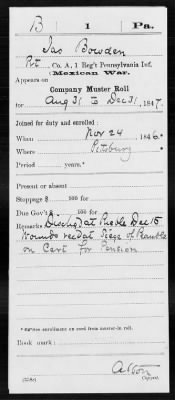 B | 1 | Pa.
Jas Bowden
Pvt, Co. A, 1 Reg't Pennsylvania Inf.
(Mexican War.)
Appears on
Company Muster Roll
for Aug 31 to Dec 31, 1847.
Joined for duty and enrolled:
When Nov 24, 1846.*
Where Pitsburg
Period years.*
Present or absent
Stoppage $ 100 for
Due Gov't $ 100 for
Remarks: at Dec 15
Wounds recd at Siege of
on Cert for Pension
*See enrollment on card from muster-in roll.
Book mark:
Copyist.